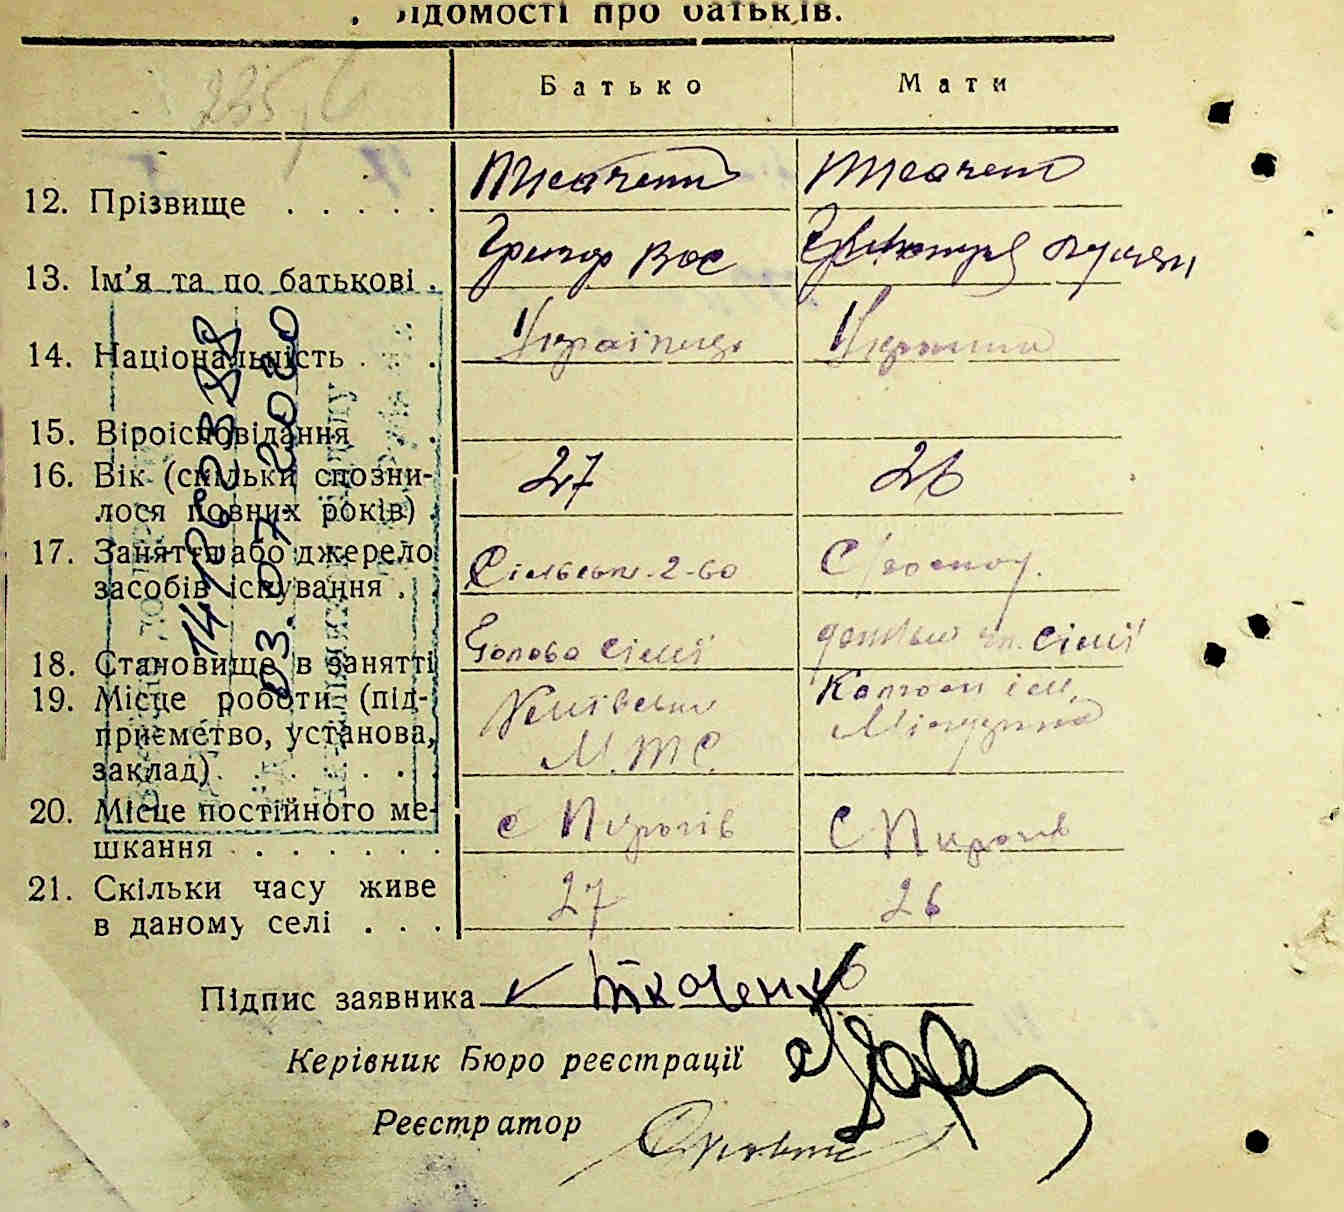 Відомості про батьків.
235,6
Батько Мати
12. Прізвище . . . . . Ткаченко Ткаченко
13. Ім'я та по батькові . Григор Вас
14. Національність . . Українець Українка
15. Віроісповідання .
16. Вік (скільки сповни- 27 26
лося повних років) .
17. Заняття або джерело
засобів існування . . Сільське
18. Становище в занятті Голова сімї чл. сімї
19. Місце роботи (під- Колгосп ім.
приємство, установа, М.Т.С. Мічуріна
заклад) . . . . . .
20. Місце постійного ме- с Пирогів с Пирогів
шкання . . . . . .
21. Скільки часу живе 27 26
в даному селі . . .
141062388
03.07.2020
Підпис заявника Ткаченко
Керівник Бюро реєстрації
Реєстратор